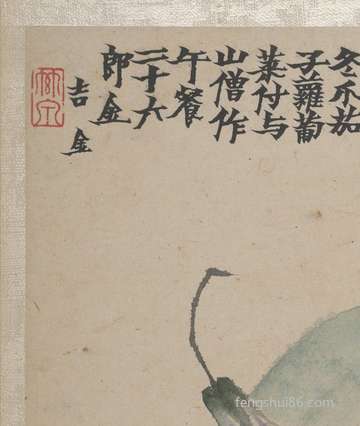 冬瓜茄
子蘿蔔
菜付与
山僧作
午餐
二十六
郎金
吉金
fengshui86.com